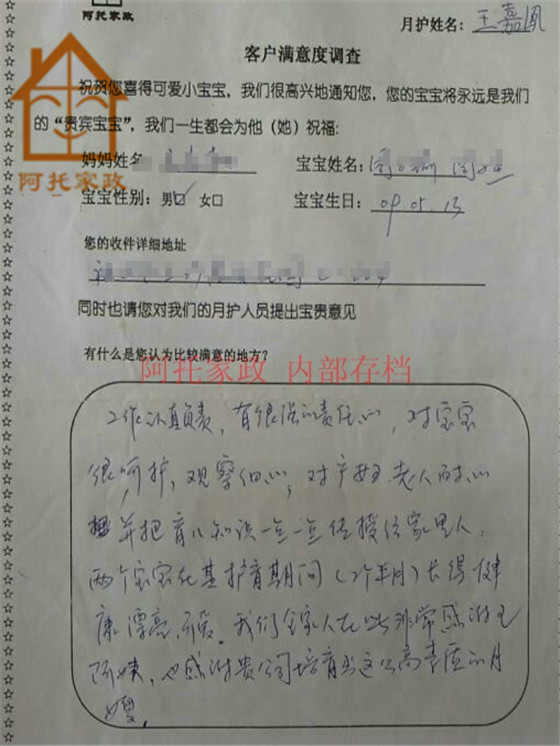 阿托家政
月护姓名: 王嘉凤
客户满意度调查
祝贺您喜得可爱小宝宝，我们很高兴地通知您，您的宝宝将永远是我们
的“贵宾宝宝”，我们一生都会为他（她）祝福:
妈妈姓名 宝宝姓名:
阿托家政
宝宝性别: 男☑ 女□ 宝宝生日: 09.05.13
您的收件详细地址
同时也请您对我们的月护人员提出宝贵意见
有什么是您认为比较满意的地方?
阿托家政 内部存档
工作认真负责，有很强的责任心，对宝宝
很呵护，观察细心，对产妇、老人耐心
并把育儿知识一点一点传授给家里人，
两个宝宝在其护育期间（2个半月）长得健
康漂亮可爱。我们全家人在此非常感谢王
阿姨，也感谢贵公司培育出这么高素质的月
嫂。